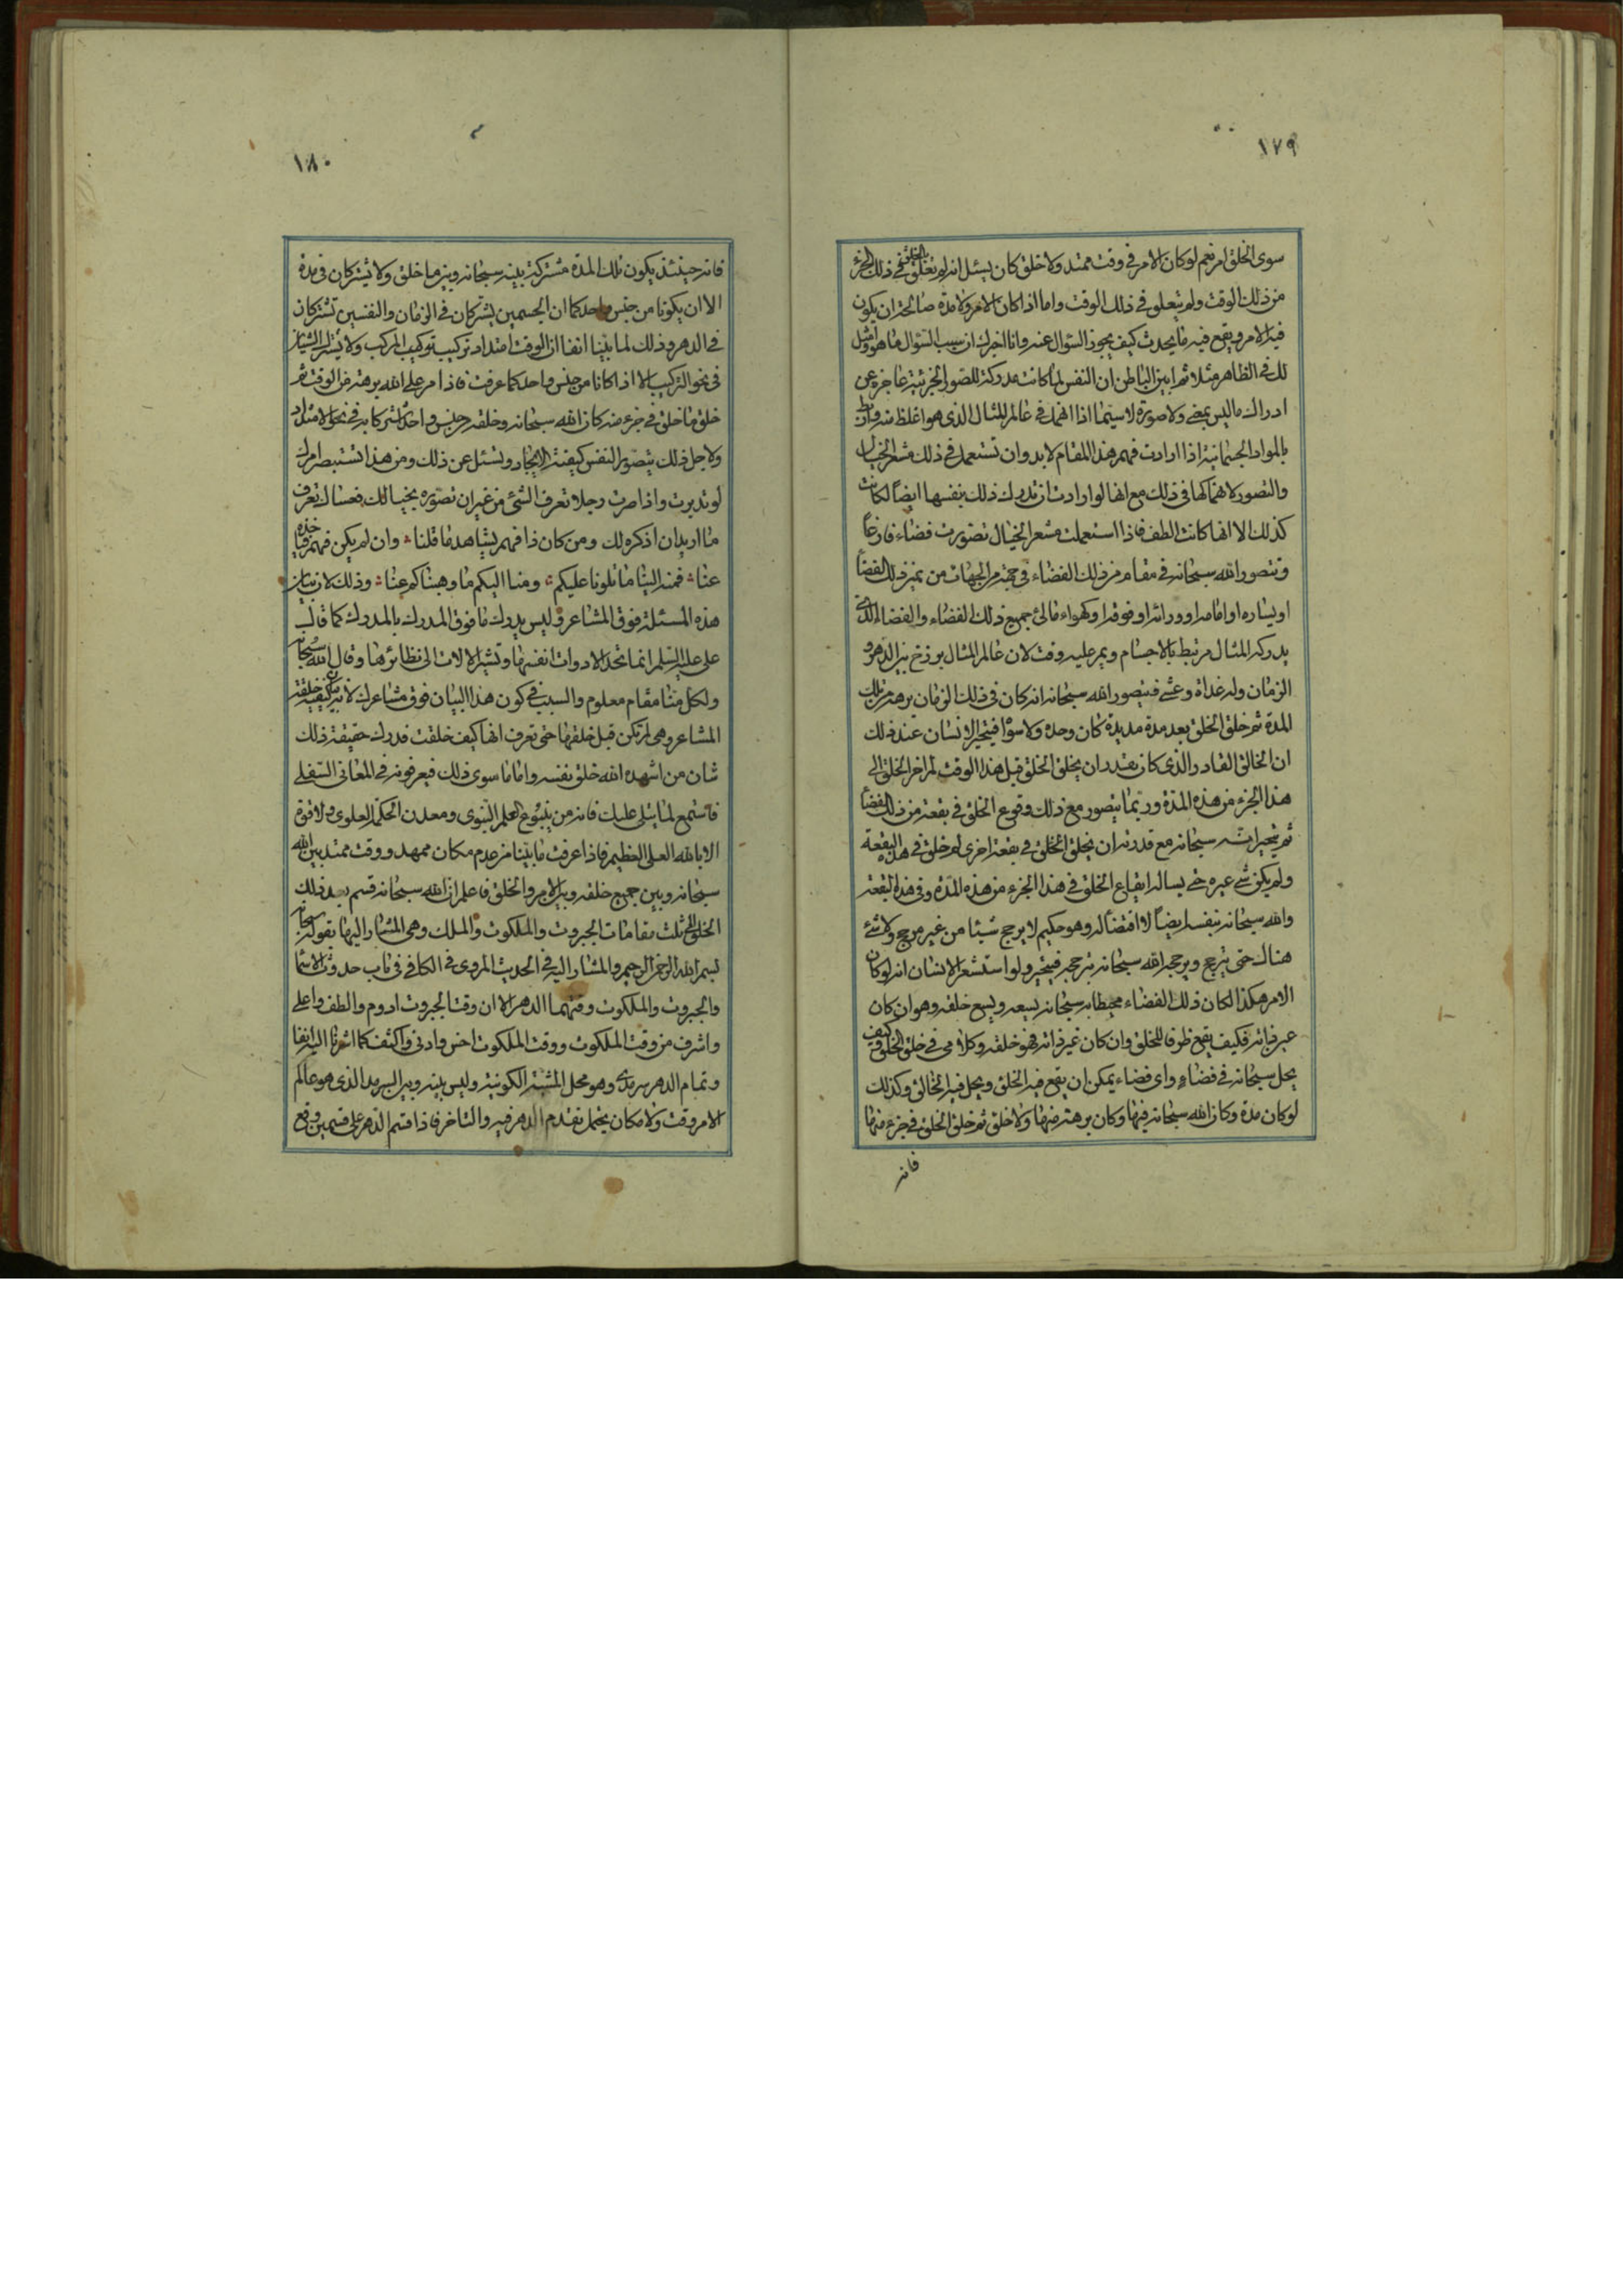 ١٧٩
سوى الخلق امر نعم لو كان الامر فى وقت ممتد ولا خلق كان يسئل انه لم تعلق الخلق فى ذلك الجزء
من ذلك الوقت ولم يتعلق فى ذلك الوقت واما اذا كان الامر ولا مدة صالحة ان يكون
فيه الامر ويقع فيه ما يحدث كيف يجوز السؤال عنه وانا اخبرك ان سبب السؤال ما هو وامثل
لك فى الظاهر مثلا ثم ابين الباطن ان النفس لما كانت مدركة للصور الجزئية عاجزة عن
ادراك ما ليس بمعنى ولا صورة لاسيما اذا انهمك فى عالم المثال الذى هو اغلظ منه وارتبط
بالمواد الجسمانية اذا ارادت فهم هذا المقام لابد وان تستعمل فى ذلك مشعر الخيال
والتصور لانهماكها فى ذلك مع انها لو ارادت ان تدرك ذلك بنفسها ايضاً لكانت
كذلك الا انها كانت الطف فاذا استعملت مشعر الخيال تصورت فضاء فارغاً
وتتصور الله سبحانه فى مقام من ذلك الفضاء فى جهة من الجهات من يمين ذلك الفضاء
او يساره او امامه او ورائه او فوقه او كهواء مالئ جميع ذلك الفضاء والفضاء الذى
يدركه المثال مرتبط بالاجسام ويمر عليه وقت لان عالم المثال برزخ بين الدهر و
الزمان وله غداة وعشى فيتصور الله سبحانه انه كان فى ذلك الزمان برهة من تلك
المدة ثم خلق الخلق بعد مدة مديدة كان وحده ولا سواه فيتحير الانسان عند ذلك
ان الخالق القادر الذى كان يقدر ان يخلق الخلق قبل هذا الوقت لم اخر الخلق الى
هذا الجزء من هذه المدة وربما يتصور مع ذلك وقوع الخلق فى بقعة من ذلك الفضاء
ثم يتحير انه سبحانه مع قدرته ان يخلق الخلق فى بقعة اخرى لم خلق فى هذه البقعة
ولم يكن شئ غيره حتى يساله ايقاع الخلق فى هذا الجزء من هذه المدة وفى هذه البقعة
والله سبحانه بنفسه ايضاً لا اقتضا له وهو حكيم لا يرجح شيئا من غير مرجح ولا شئ
هناك حتى يترجح ويرجحه الله سبحانه بترجحه فيتحير ولو استشعر الانسان انه لو كان
الامر هكذا لكان ذلك الفضاء محيطا به سبحانه يسعه ويسع خلقه وهو ان كان
عين ذاته فكيف يقع ظرفا للخلق وان كان غير ذاته فهو خلقه وكلامى فى خلق الخلق وكيف
يحل سبحانه فى فضاء واى فضاء يمكن ان يقع فيه الخلق ويحل فيه الخالق وكذلك
لو كان مدة وكان الله سبحانه فيها وكان برهة منها ولا خلق ثم خلق الخلق فى جزء منها
فانه
١٨٠
فانه حينئذ يكون تلك المدة مشتركة بينه سبحانه وبين ما خلق ولا يشتركان فى مدة
الا ان يكونا من جنس واحد كما ان الجسمين يشتركان فى الزمان والنفسين تشتركان
فى الدهر وذلك لما بينا انفا ان الوقت امتداد تركيب المركب ولا يشترك الشيئان
فى نحو التركيب الا اذا كانا من جنس واحد كما عرفت فاذا مر على الله برهة من الوقت ثم
خلق ما خلق فى جزء منه كان الله سبحانه وخلقه من جنس واحد لاشتراكهما فى نحو الامتداد
ولاجل ذلك يتصور النفس كيفية الايجاد وتسئل عن ذلك ومن هذا تستبصر امرك
لو تدبرت واذا صرت رجلا تعرف الشئ من غير ان تصوره بخيالك فعساك تعرف
ما اريد ان اذكره لك ومن كان ذا فهم يشاهد ما قلنا ؞ وان لم يكن فهم فياخذه
عنا ؞ فمنه الينا ما تلونا عليكم ؞ ومنا اليكم ما وهبناكم عنا ؞ وذلك لان بيان
هذه المسئلة فوق المشاعر وليس يدرك ما فوق المدرك بالمدرك كما قال
على عليه السلم انما تحد الادوات انفسها وتشير الالات الى نظائرها وقال الله سبحانه
ولكل منا مقام معلوم والسبب فى كون هذا البيان فوق مشاعرك لانه بيان كيفية خلقة
المشاعر وهى لم تكن قبل خلقها حتى تعرف انها كيف خلقت فدرك حقيقة ذلك
شان من اشهده الله خلق نفسه واما ما سوى ذلك فيعرفونه فى المعانى السفلى
فاستمع لما يتلى عليك فانه من ينبوع العلم النبوى ومعدن الحكم العلوى ولا قوة
الا بالله العلى العظيم فاذا عرفت ما بينا من عدم مكان ممهد ووقت ممتد بين الله
سبحانه وبين جميع خلقه وبين الامر والخلق فاعلم ان الله سبحانه قسم بعد ذلك
الخلق الى ثلث مقامات الجبروت والملكوت والملك وهى المشار اليها بقوله سبحانه
بسم الله الرحمن الرحيم والمشار اليه فى الحديث المروى فى الكافى فى باب حدوث الاسماء
والجبروت والملكوت وقتهما الدهر الا ان وقت الجبروت ادوم والطف واعلى
واشرف من وقت الملكوت ووقت الملكوت اخس وادنى واكثف كما اشرنا اليه انفا
وتمام الدهر سرمدى وهو محل المشية الكونية وليس بينه وبين السرمد الذى هو عالم
الامر وقت ولا مكان يحتمل تقدم الدهر فيه والتاخر فاذا قسم الدهر على قسمين وقع